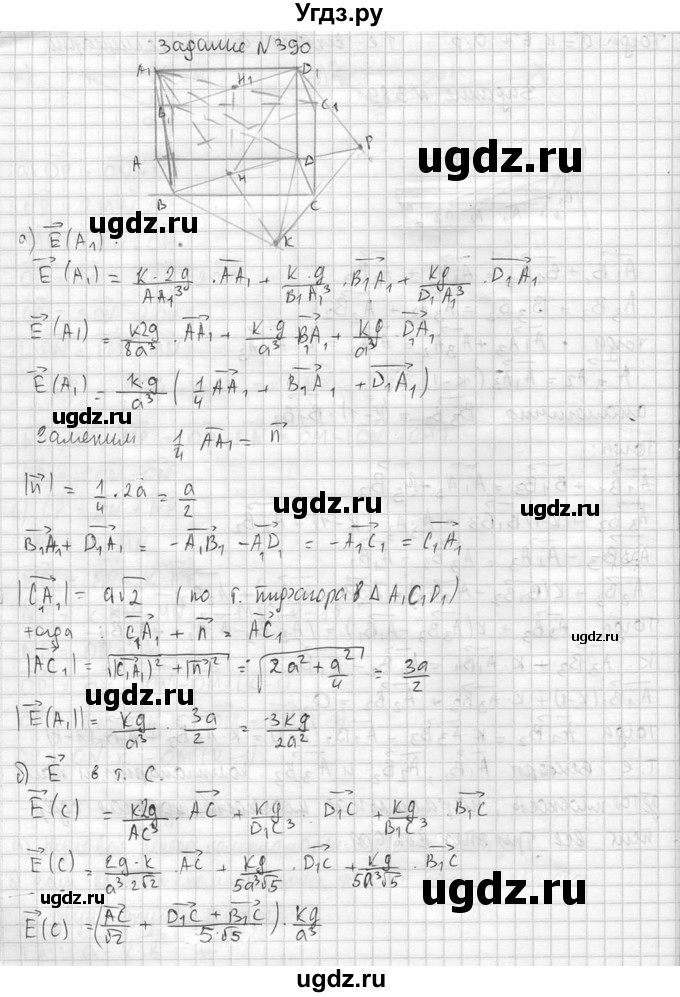 Угдз.ру
Задание N390
A₁ D₁ H₁
B₁ C₁
A H D P
B C
K
ugdz.ru
ugdz.ru
а) E⃗(A₁).
ugdz.ru
E⃗(A₁) = K·2g/AA₁³ · AA₁⃗ + K·g/B₁A₁³ · B₁A₁⃗ + Kg/D₁A₁³ · D₁A₁⃗
E⃗(A₁) = K2g/8a³ · AA₁⃗ + K·g/a³ B₁A₁⃗ + Kg/a³ · D₁A₁⃗
E⃗(A₁) = K·g/a³ (1/4 AA₁⃗ + B₁A₁⃗ + D₁A₁⃗)
ugdz.ru
Заменим 1/4 AA₁⃗ = n⃗
|n⃗| = 1/4 · 2a = a/2
ugdz.ru
ugdz.ru
B₁A₁⃗ + D₁A₁⃗ = -A₁B₁⃗ - A₁D₁⃗ = -A₁C₁⃗ = C₁A₁⃗
|C₁A₁⃗| = a√2 (по т. пифагора в Δ A₁C₁D₁)
тогда : C₁A₁⃗ + n⃗ = AC₁⃗
ugdz.ru
|AC₁⃗| = √(|C₁A₁⃗|² + |n⃗|²) = √(2a² + a²/4) = 3a/2
|E⃗(A₁)| = Kg/a³ · 3a/2 = -3Kg/2a²
ugdz.ru
б) E⃗ в т. C.
E⃗(C) = K2g/AC³ · AC⃗ + Kg/D₁C³ · D₁C⃗ + Kg/B₁C³ · B₁C⃗
ugdz.ru
E⃗(C) = 2g·K/a³·2√2 · AC⃗ + Kg/5a³√5 · D₁C⃗ + Kg/5a³√5 · B₁C⃗
ugdz.ru
E⃗(C) = (AC⃗/√2 + D₁C⃗ + B₁C⃗/5·√5) · Kg/a³
ugdz.ru
ugdz.ru